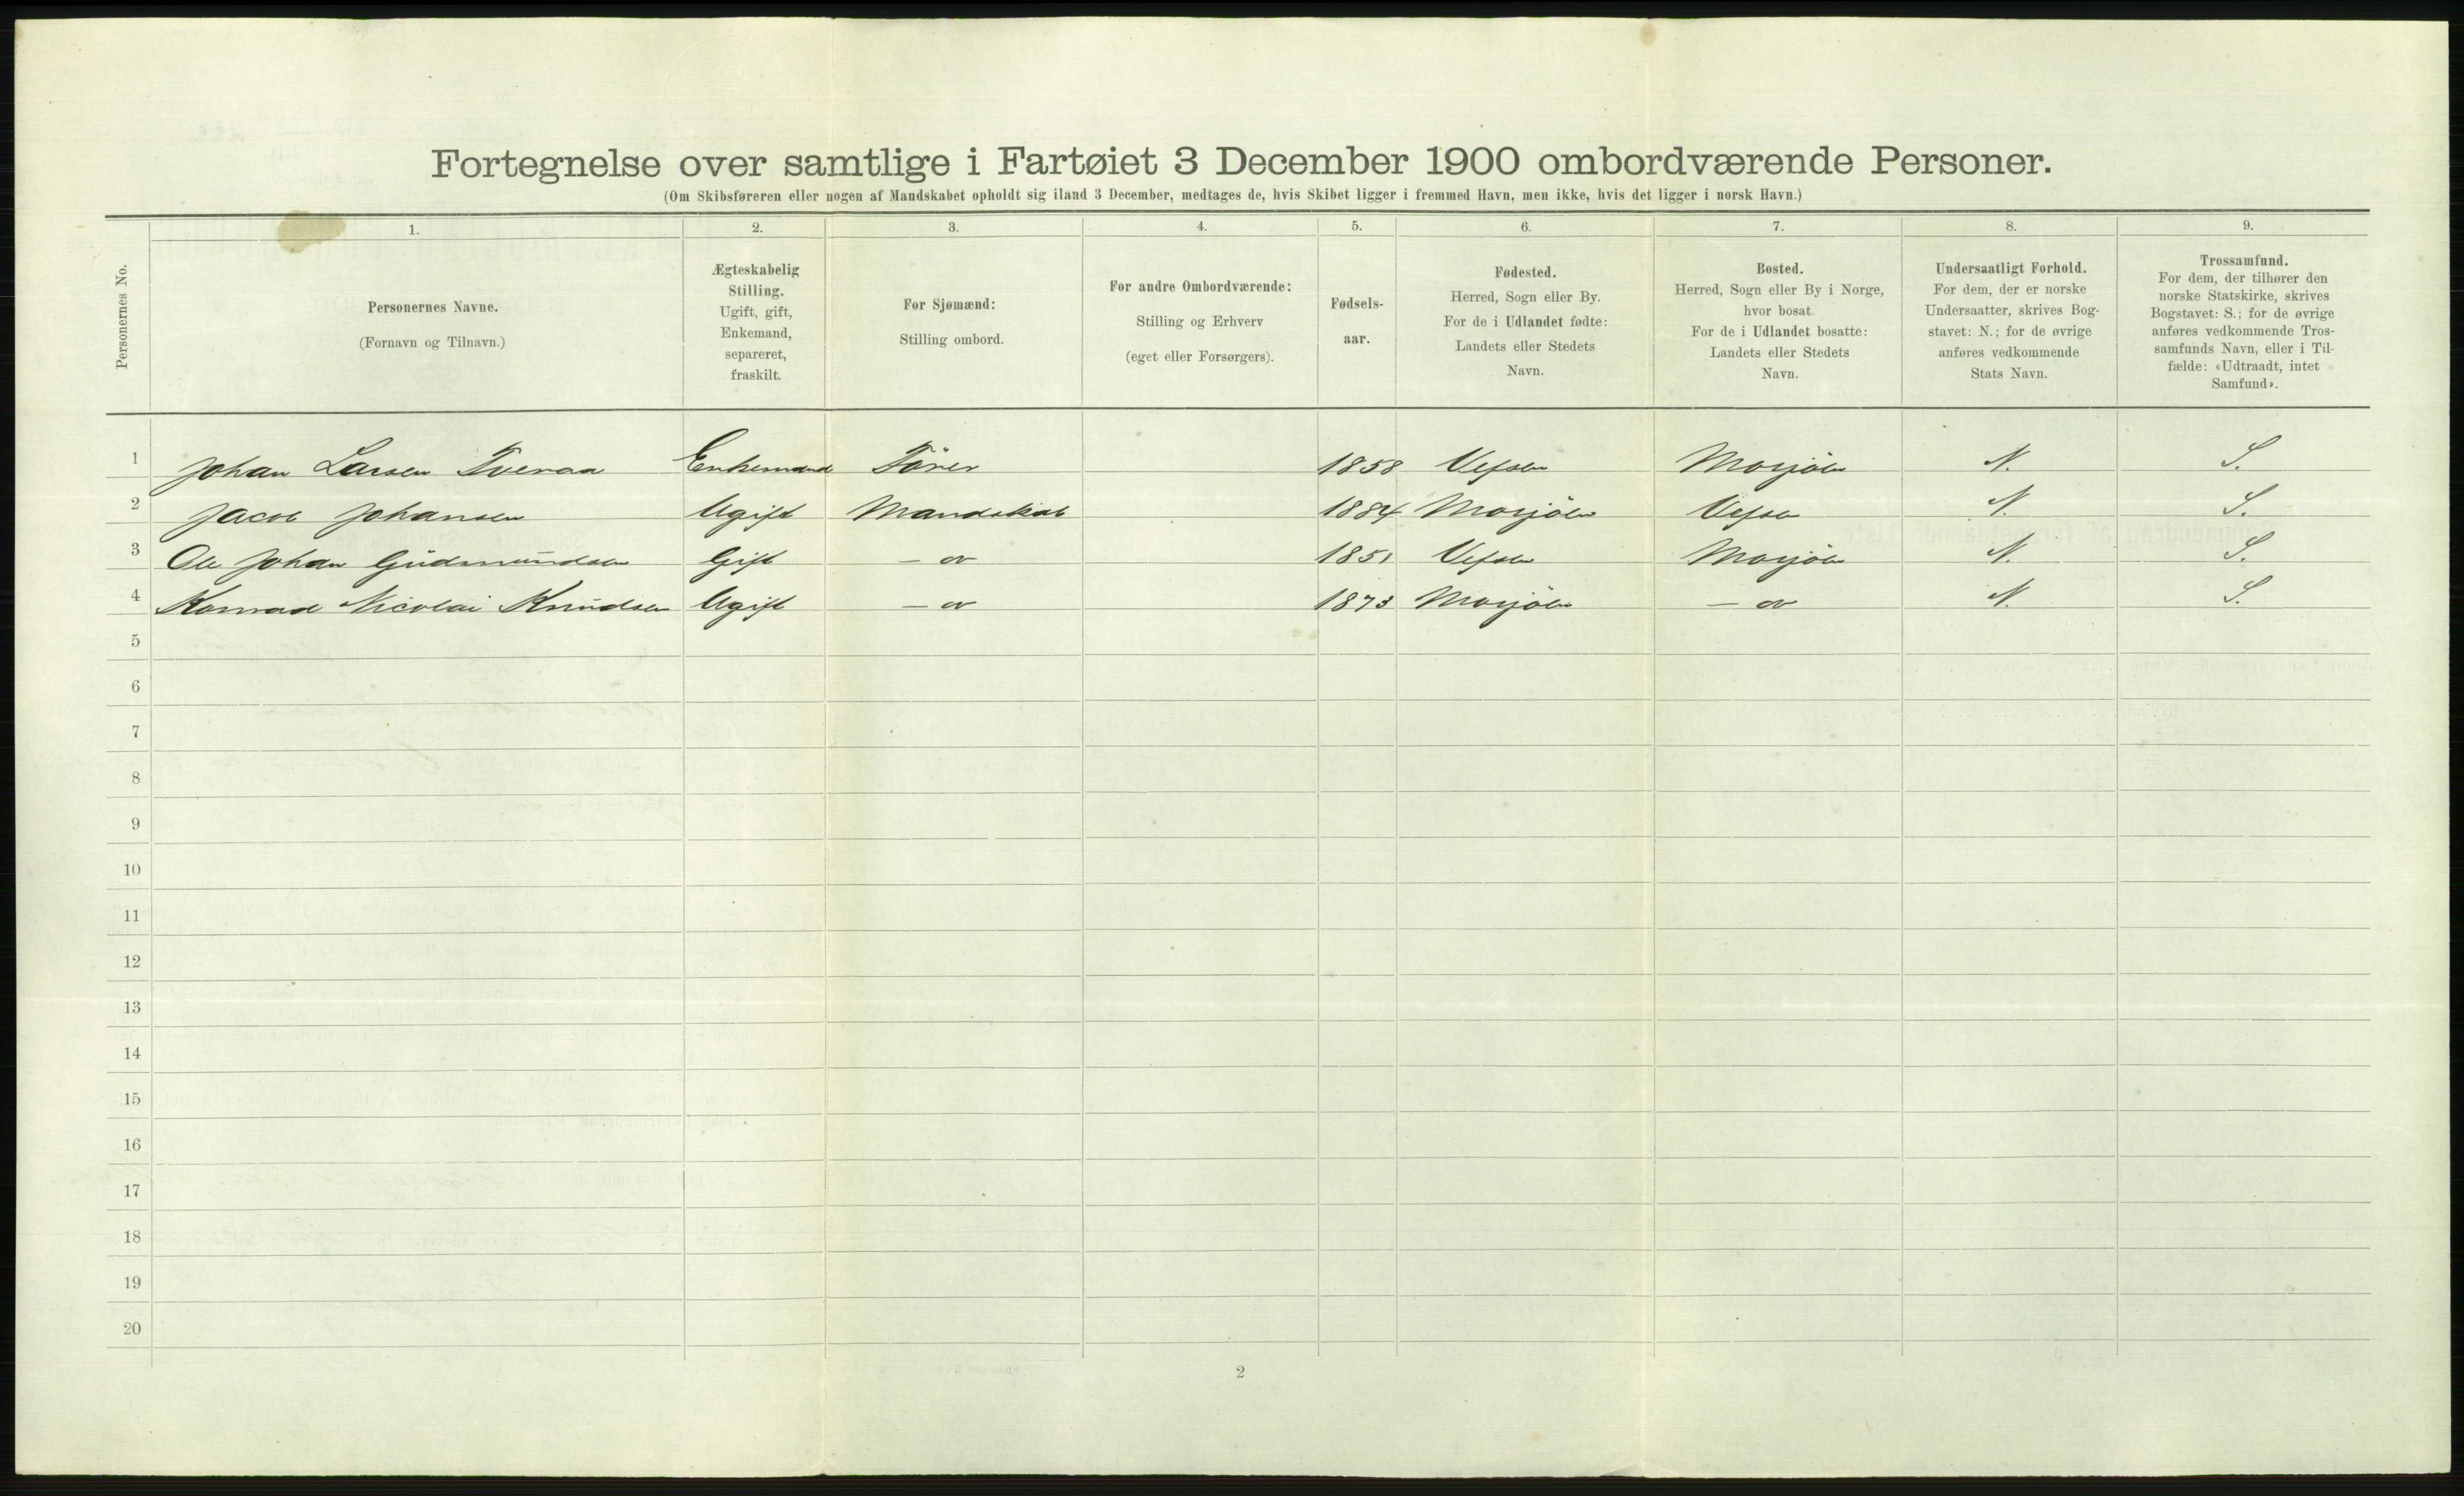 Fortegnelse over samtlige i Fartøiet 3 December 1900 ombordværende Personer.
(Om Skibsføreren eller nogen af Mandskabet opholdt sig iland 3 December, medtages de, hvis Skibet ligger i fremmed Havn, men ikke, hvis det ligger i norsk Havn.)
Personernes No.
1.
Personernes Navne.
(Fornavn og Tilnavn.)
2.
Ægteskabelig
Stilling.
Ugift, gift,
Enkemand,
separeret,
fraskilt.
3.
For Sjømænd:
Stilling ombord.
4.
For andre Ombordværende:
Stilling og Erhverv
(eget eller Forsørgers).
5.
Fødsels-
aar.
6.
Fødested.
Herred, Sogn eller By.
For de i Udlandet fødte:
Landets eller Stedets
Navn.
7.
Bosted.
Herred, Sogn eller By i Norge,
hvor bosat.
For de i Udlandet bosatte:
Landets eller Stedets
Navn.
8.
Undersaatligt Forhold.
For dem, der er norske
Undersaatter, skrives Bog-
stavet: N.; for de øvrige
anføres vedkommende
Stats Navn.
9.
Trossamfund.
For dem, der tilhører den
norske Statskirke, skrives
Bogstavet: S.; for de øvrige
anføres vedkommende Tros-
samfunds Navn, eller i Til-
fælde: «Udtraadt, intet
Samfund».
1 Johan Larsen Tveraa Enkemand Förer 1858 Vefsen Mosjöen N. S.
2 Jacob Johansen Ugift Mandskab 1884 Mosjöen Vefsen N. S.
3 Ole Johan Gudmundsen Gift — " — 1851 Vefsen Mosjöen N. S.
4 Konrad Nicolai Knudsen Ugift — " — 1873 Mosjöen — " — N. S.
5
6
7
8
9
10
11
12
13
14
15
16
17
18
19
20
2